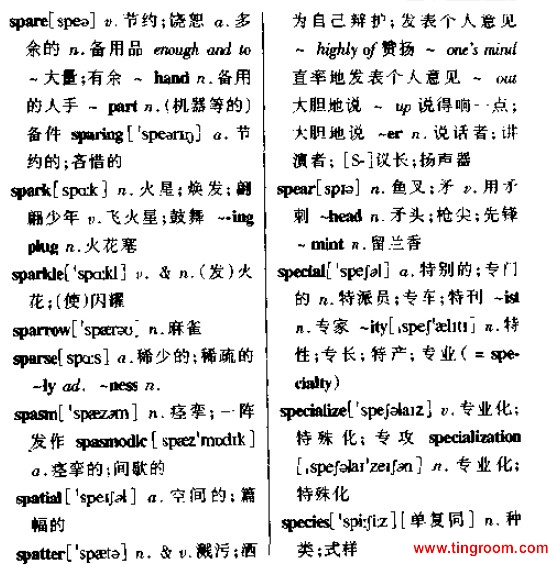 spare[speə] v.节约;饶恕 a.多
余的 n.备用品 enough and to
~大量;有余 ~ hand n.备用
的人手 ~ part n.(机器等的)
备件 sparing['speərɪŋ] a.节
约的;吝惜的
spark[spɑ:k] n.火星;焕发;翩
翩少年 v.飞火星;鼓舞 ~ing
plug n.火花塞
sparkle['spɑ:kl] v. & n.(发)火
花;(使)闪耀
sparrow['spærəʊ] n.麻雀
sparse[spɑ:s] a.稀少的;稀疏的
~ly ad. ~ness n.
spasm['spæzəm] n.痉挛;一阵
发作 spasmodic[spæz'mɒdɪk]
a.痉挛的;间歇的
spatial['speɪʃəl] a.空间的;篇
幅的
spatter['spætə] n. & v.溅污;洒
为自己辩护;发表个人意见
~ highly of 赞扬 ~ one's mind
直率地发表个人意见 ~ out
大胆地说 ~ up 说得响一点;
大胆地说 ~er n.说话者;讲
演者; [S-]议长;扬声器
spear[spɪə] n.鱼叉;矛 v.用矛
刺 ~head n.矛头;枪尖;先锋
~ mint n.留兰香
special['speʃəl] a.特别的;专门
的 n.特派员;专车;特刊 ~ist
n.专家 ~ity[ˌspeʃɪ'ælɪtɪ] n.特
性;专长;特产;专业( = spe-
cialty)
specialize['speʃəlaɪz] v.专业化;
特殊化;专攻 specialization
[ˌspeʃəlaɪ'zeɪʃən] n.专业化;
特殊化
species['spi:ʃi:z][单复同] n.种
类;式样
www.tingroom.com